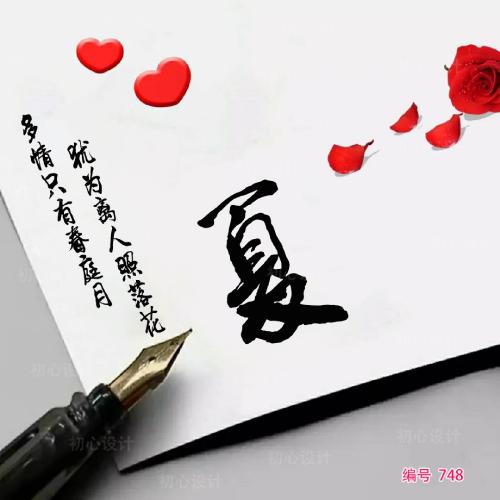 多情只有春庭月
犹为离人照落花
夏
初心设计
初心设计
初心设计
初心设计
初心设计
初心设计
编号 748